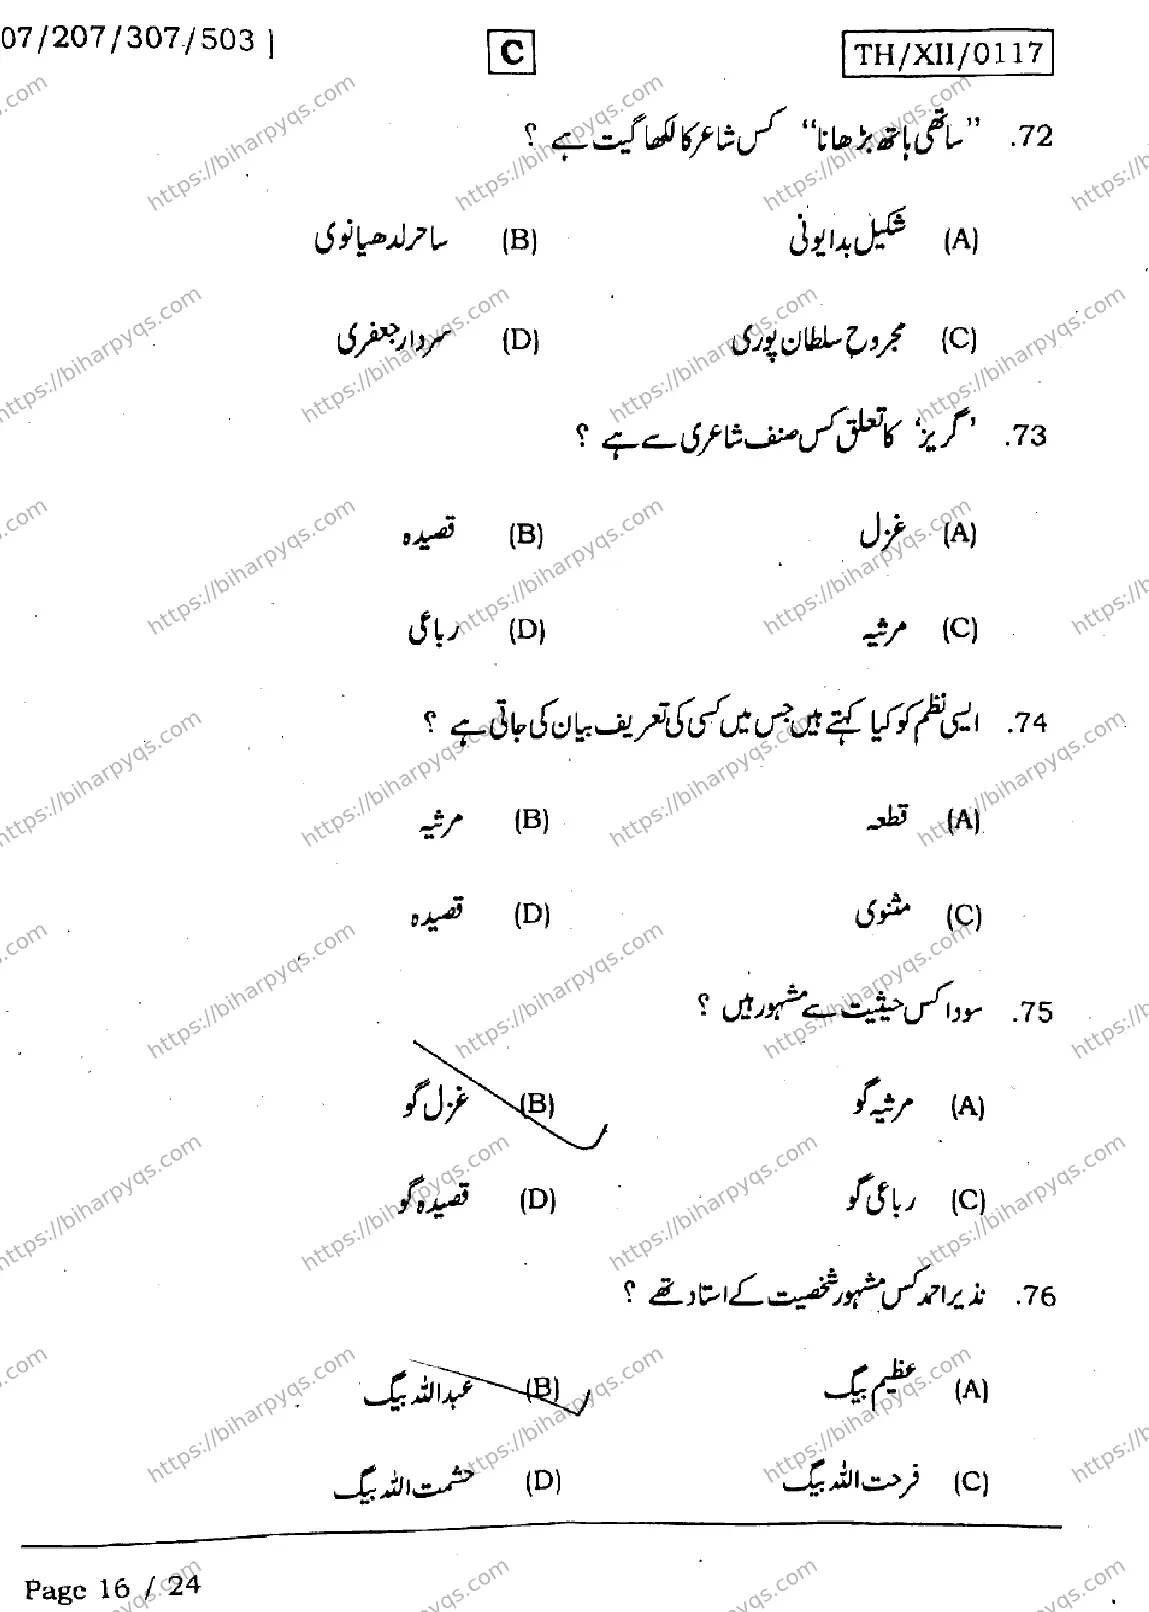 07/207/307/503 ] C TH/XII/0117
72. "ساتھی ہاتھ بڑھانا" کس شاعر کا لکھا گیت ہے ؟
(A) شکیل بدایونی (B) ساحر لدھیانوی
(C) مجروح سلطان پوری (D) سردار جعفری
73. 'گریز' کا تعلق کس صنف شاعری سے ہے ؟
(A) غزل (B) قصیدہ
(C) مرثیہ (D) رباعی
74. ایسی نظم کو کیا کہتے ہیں جس میں کسی کی تعریف بیان کی جاتی ہے ؟
(A) قطعہ (B) مرثیہ
(C) مثنوی (D) قصیدہ
75. سودا کس حیثیت سے مشہور ہیں ؟
(A) مرثیہ گو (B) غزل گو
(C) رباعی گو (D) قصیدہ گو
76. نذیر احمد کس مشہور شخصیت کے استاد تھے ؟
(A) عظیم بیگ (B) عبداللہ بیگ
(C) فرحت اللہ بیگ (D) حشمت اللہ بیگ
Page 16 / 24
https://biharpyqs.com